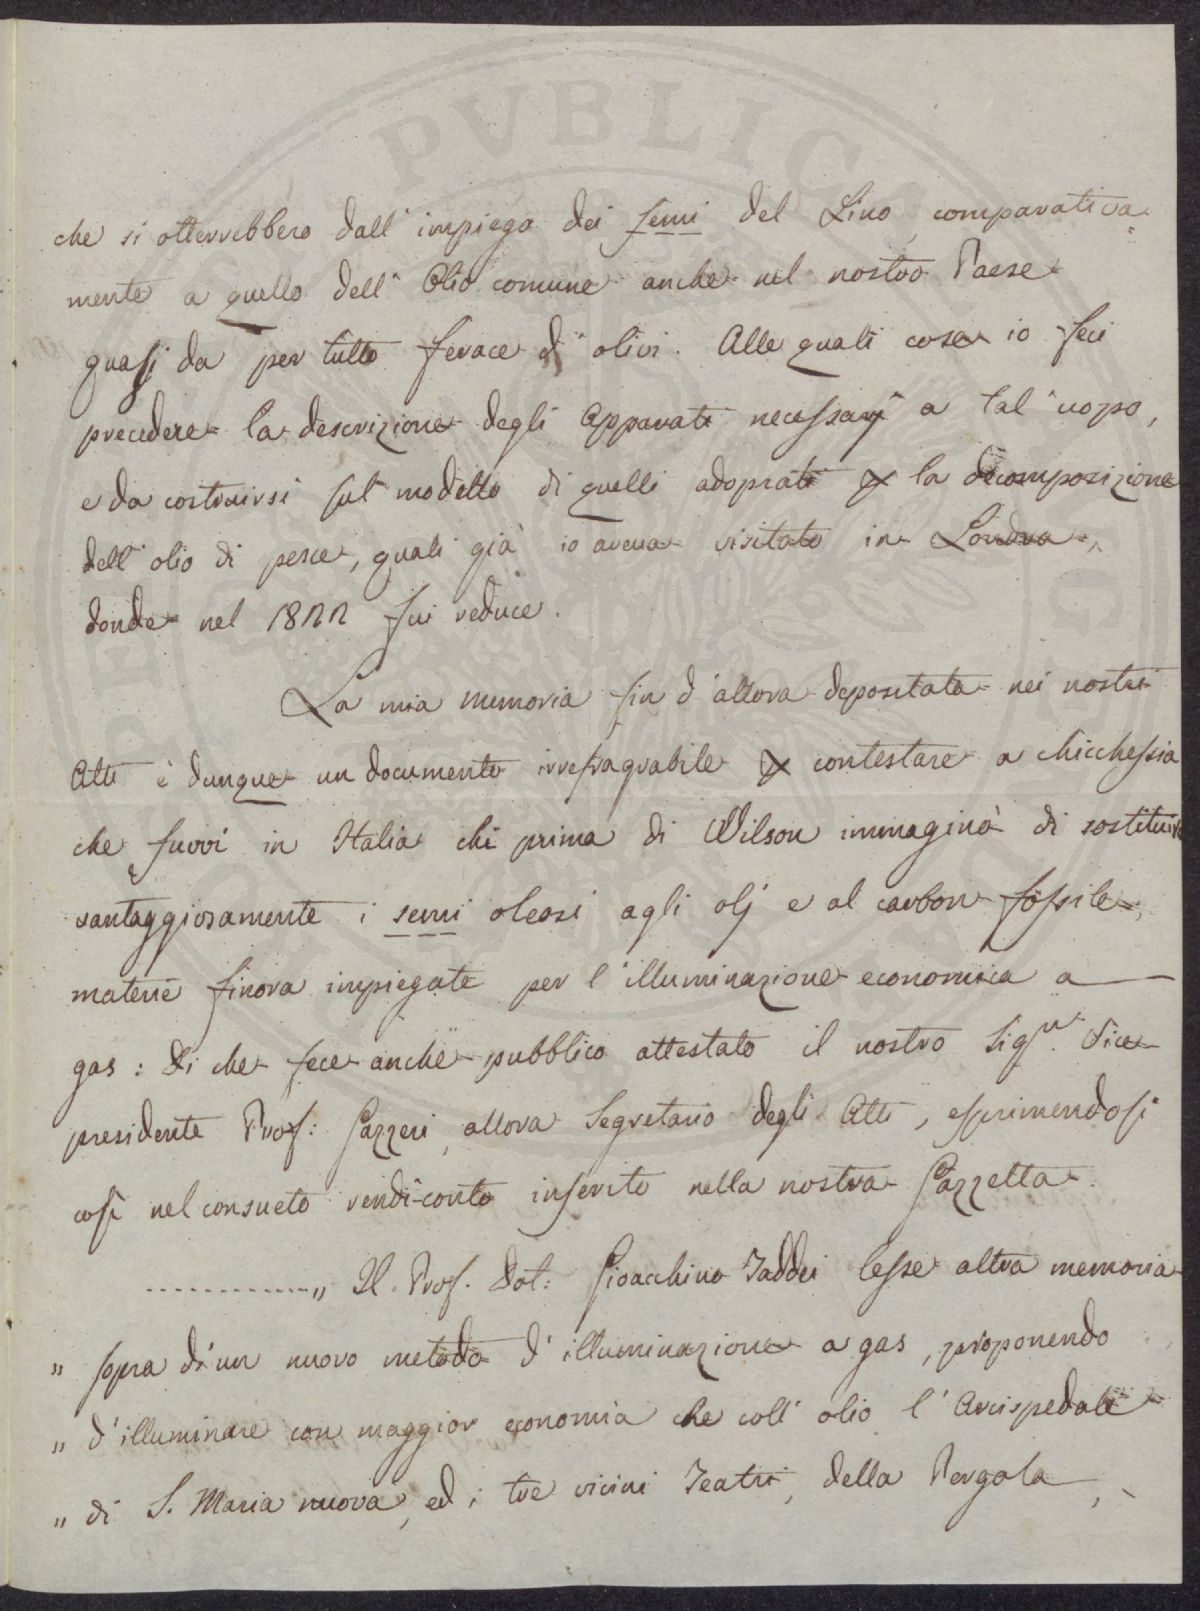 che si otterrebbero dall'impiego dei semi del Lino, comparativa=
mente a quello dell'Olio comune anche nel nostro Paese
quasi da per tutto ferace di olivi. Alle quali cose io feci
precedere la descrizione degli Apparati necessarj a tal'uopo,
e da costruirsi sul modello di quelli adoprati p la decomposizione
dell'olio di pesce, quali già io aveva visitato in Londra,
donde nel 1822 fui reduce.
La mia memoria fin d'allora depositata nei nostri
Atti è dunque un documento irrefragrabile p contestare a chicchessia
che fuovi in Italia chi prima di Wilson immaginò di sostituire
vantaggiosamente i semi oleosi agli olj e al carbon fossile,
materie finora impiegate per l'illuminazione economica a
gas: Di che fece anche pubblico attestato il nostro Sigr. Vice
presidente Prof: Gazzeri, allora Segretario degli Atti, esprimendosi
così nel consueto rendi-conto inserito nella nostra Gazzetta.
.............„ Il Prof. Dot: Gioacchino Taddei lesse altra memoria
„ sopra di un nuovo metodo d'illuminazione a gas, proponendo
„ d'illuminare con maggior economia che coll'olio l'Arcispedale
„ di S. Maria nuova, ed i tre vicini Teatri, della Pergola,
PUBLIC